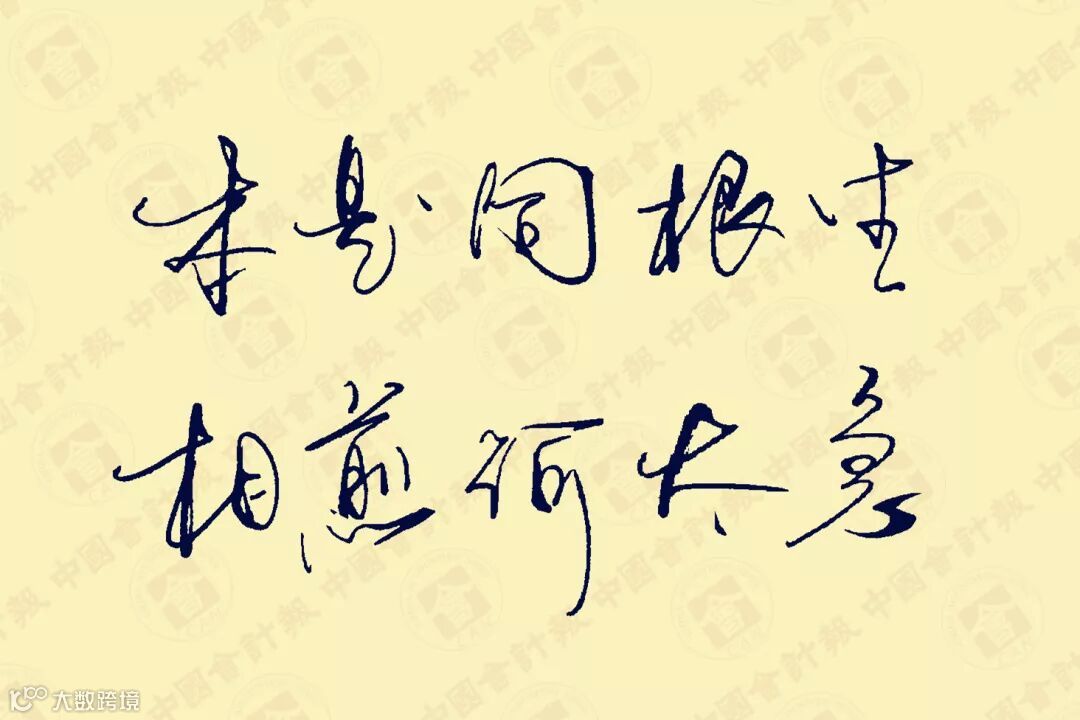 本是同根生
相煎何太急
中國會計報
大数跨境